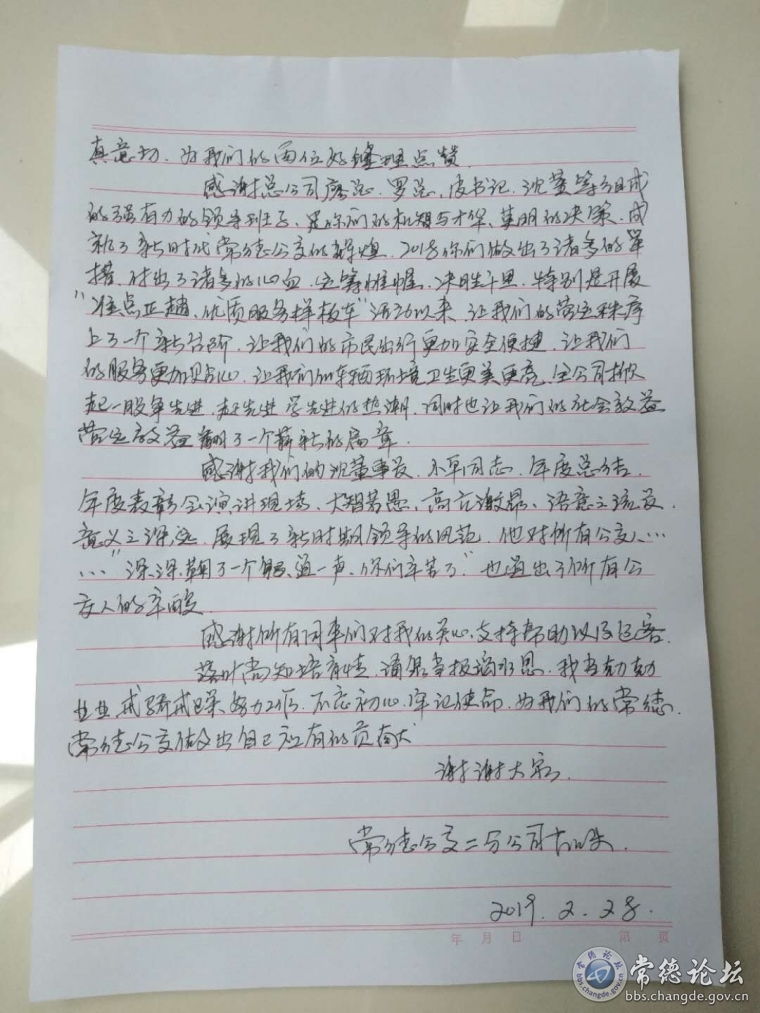 真意切，为我们的两位好经理点赞
感谢总公司廖总、罗总、皮书记、沈董等组成
的强有力的领导班子，是你们的机智与才华、英明的决策，成
就了新时代常德公交的辉煌，2018你们做出了诸多的举
措，付出了诸多的心血，运筹帷幄，决胜千里，特别是开展
"准点正趟，优质服务样板车"活动以来，让我们的营运秩序
上了一个新台阶，让我们的市民出行更加安全便捷，让我们
的服务更加贴心，让我们的车辆环境卫生更美更亮，全公司掀
起一股争先进，赶先进，学先进的热潮，同时也让我们的社会效益
营运效益翻了一个崭新的篇章。
感谢我们的沈董事长，小平同志，年度总结
年度表彰会演讲现场，大智若愚，高亢激昂，语意之流及
意义之深远，展现了新时期领导的风范，他对所有公交人……
……"深深鞠了一个躬，道一声，你们辛苦了"也道出了所有公
交人的辛酸
感谢所有同事们对我的关心，支持帮助以及包容。
落叶尚知培育情，涌泉当报滴水恩，我当勤勤
业业，戒骄戒躁，努力工作，不忘初心，牢记使命，为我们的常德，
常德公交做出自己应有的贡献
谢谢大家
常德公交二分公司
2019.2.28.
年 月 日 第 页
常德论坛
bbs.changde.gov.cn